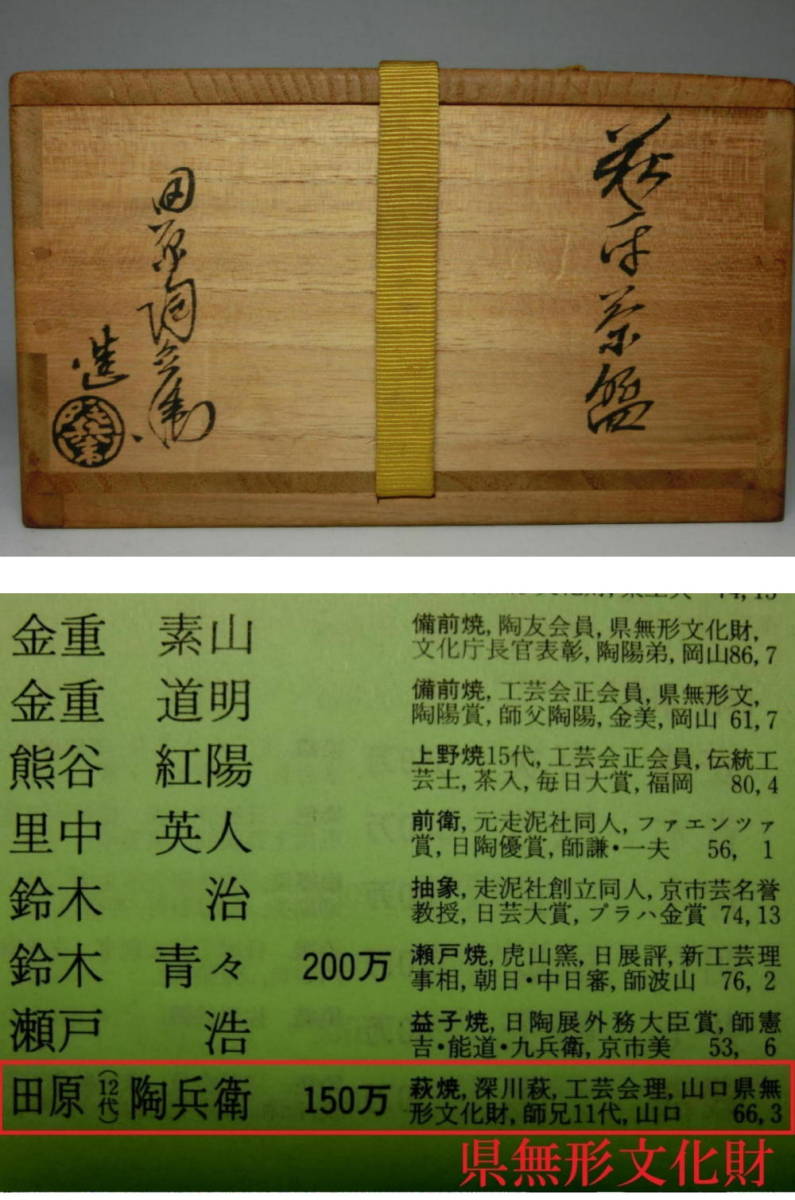 萩平茶盌
田原陶兵衛
造
金重 素山 備前焼, 陶友会員, 県無形文化財,
文化庁長官表彰, 陶陽弟, 岡山86, 7
金重 道明 備前焼, 工芸会正会員, 県無形文,
陶陽賞, 師父陶陽, 金美, 岡山 61, 7
熊谷 紅陽 上野焼15代, 工芸会正会員, 伝統工
芸士, 茶入, 毎日大賞, 福岡 80, 4
里中 英人 前衛, 元走泥社同人, ファエンツァ
賞, 日陶優賞, 師謙・一夫 56, 1
鈴木 治 抽象, 走泥社創立同人, 京市芸名誉
教授, 日芸大賞, プラハ金賞 74, 13
鈴木 青々 200万 瀬戸焼, 虎山窯, 日展評, 新工芸理
事相, 朝日・中日審, 師波山 76, 2
瀬戸 浩 益子焼, 日陶展外務大臣賞, 師憲
吉・能道・九兵衛, 京市美 53, 6
田原(12代)陶兵衛 150万 萩焼, 深川萩, 工芸会理, 山口県無
形文化財, 師兄11代, 山口 66, 3
県無形文化財